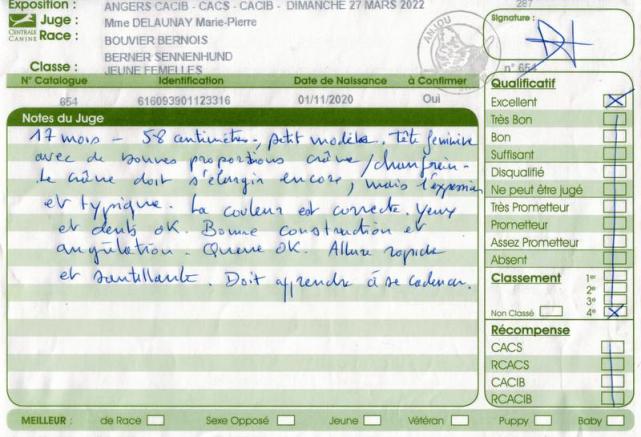 Exposition : ANGERS CACIB - CACS - CACIB - DIMANCHE 27 MARS 2022 287
Juge : Mme DELAUNAY Marie-Pierre
Signature :
CENTRALE CANINE
Race : BOUVIER BERNOIS
BERNER SENNENHUND
ANJOU
Classe : JEUNE FEMELLES
n° 654
N° Catalogue Identification Date de Naissance à Confirmer
654 616093901123316 01/11/2020 Oui
Notes du Juge
17 mois - 58 centimètres, petit modèle. Tête féminine
avec de bonnes proportions crâne / chanfrein.
Le crâne doit s'élargir encore, mais l'expression
et typique. La couleur est correcte. Yeux
et dents OK. Bonne construction et
angulation. Queue OK. Allure rapide
et sautillante. Doit apprendre à se cadencer.
Qualificatif
Excellent
Très Bon
Bon
Suffisant
Disqualifié
Ne peut être jugé
Très Prometteur
Prometteur
Assez Prometteur
Absent
Classement 1er
2e
3e
Non Classé 4e
Récompense
CACS
RCACS
CACIB
RCACIB
MEILLEUR : de Race Sexe Opposé Jeune Vétéran Puppy Baby